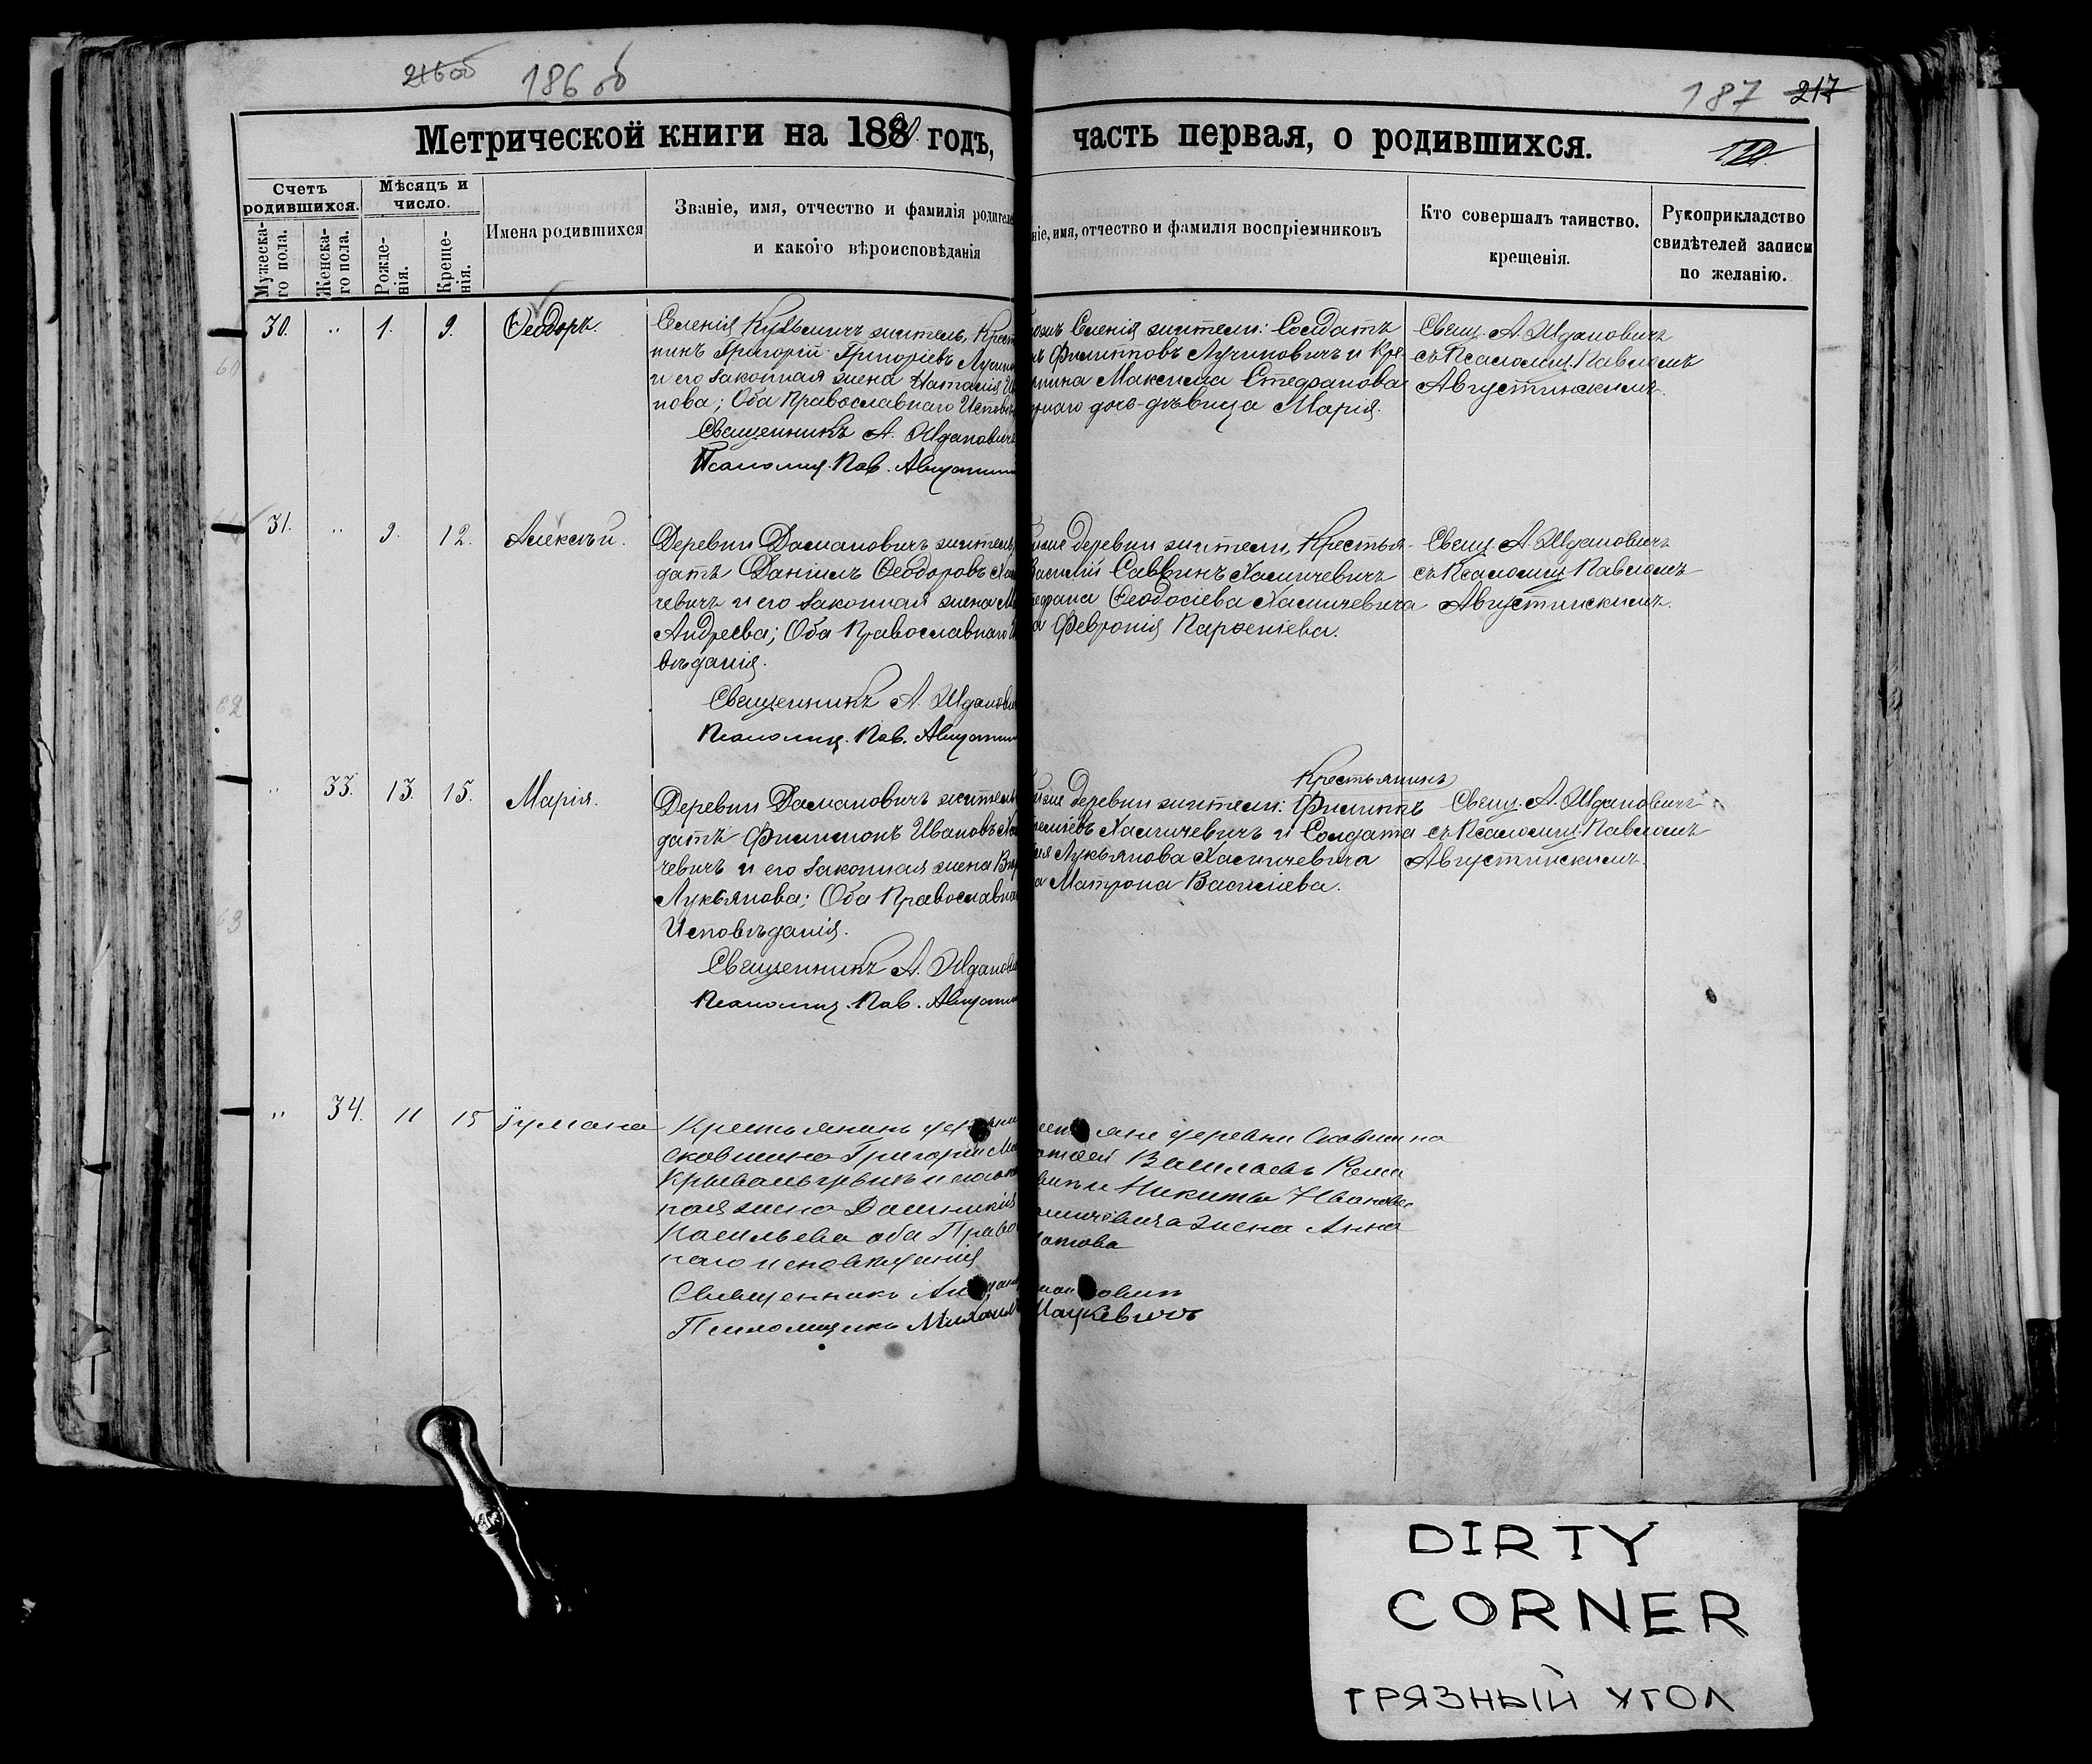 216 об
186 об
187 217
Метрической книги на 188 годъ, часть первая, о родившихся.
Счетъ родившихся.
Мѣсяцъ и число.
Мужеска-го пола.
Женска-го пола.
Рожде-нія.
Креще-нія.
Имена родившихся
Званіе, имя, отчество и фамилія родителе
и какого вѣроисповѣданія
ніе, имя, отчество и фамилія воспріемниковъ
Кто совершалъ таинство.
крещенія.
Рукоприкладство
свидѣтелей записи
по желанію.
30. " 1. 9. Ѳеодоръ.
Селенія Кузьмичъ житель, Крест
нинъ Григорій Григоріевъ Лучин
и его законная жена Наталія
нова; Оба Православнаго Исповѣ
Священникъ А. Ждановичъ
Псаломщ. Пав. Августин
Селенія жители: Солдатъ
Филипповъ Лучиновичъ и Кре-
нина Максима Стефанова
дочь-дѣвица Марія.
Свящ. А. Ждановичъ
съ Псаломщ. Павломъ
Августинскимъ.
31. " 9. 12. Алексѣй.
Деревни Дамановичъ житель
датъ Даніилъ Ѳеодоровъ Хам
чевичъ и его законная жена М
Андреева; Оба Православнаго И
вѣданія.
Священникъ А. Жданови
Псаломщ. Пав. Августин
деревни жители, Крестья-
Василій Саввинъ Хамичевичъ
тефана Ѳеодосіева Хамичевича
а Февронія Парѳеніева.
Свящ. А. Ждановичъ
съ Псаломщ. Павломъ
Августинскимъ.
" 33. 13. 15. Марія.
Деревни Дамановичъ житель
датъ Филимонъ Ивановъ Хам
чевичъ и его законная жена
Лукьянова; Оба Православна
Исповѣданія.
Священникъ А. Жданов
Псаломщ. Пав. Августин
Крестьянинъ
деревни жители: Филиппъ
Хамичевичъ и Солдата
Лукьянова Хамичевича
а Матрона Василіева.
Свящ. А. Ждановичъ
съ Псаломщ. Павломъ
Августинскимъ.
" 34. 11 15
Крестьянинъ
Сковшина Григорій
жена
Васильева оба Право
наго исповѣданія
Священникъ
Псаломщикъ Михаилъ Мацкевичъ
яне деревни Сковшина
Васильевъ
и Никиты Иванова
жена Анна
DIRTY
CORNER
ГРЯЗНЫЙ УГОЛ